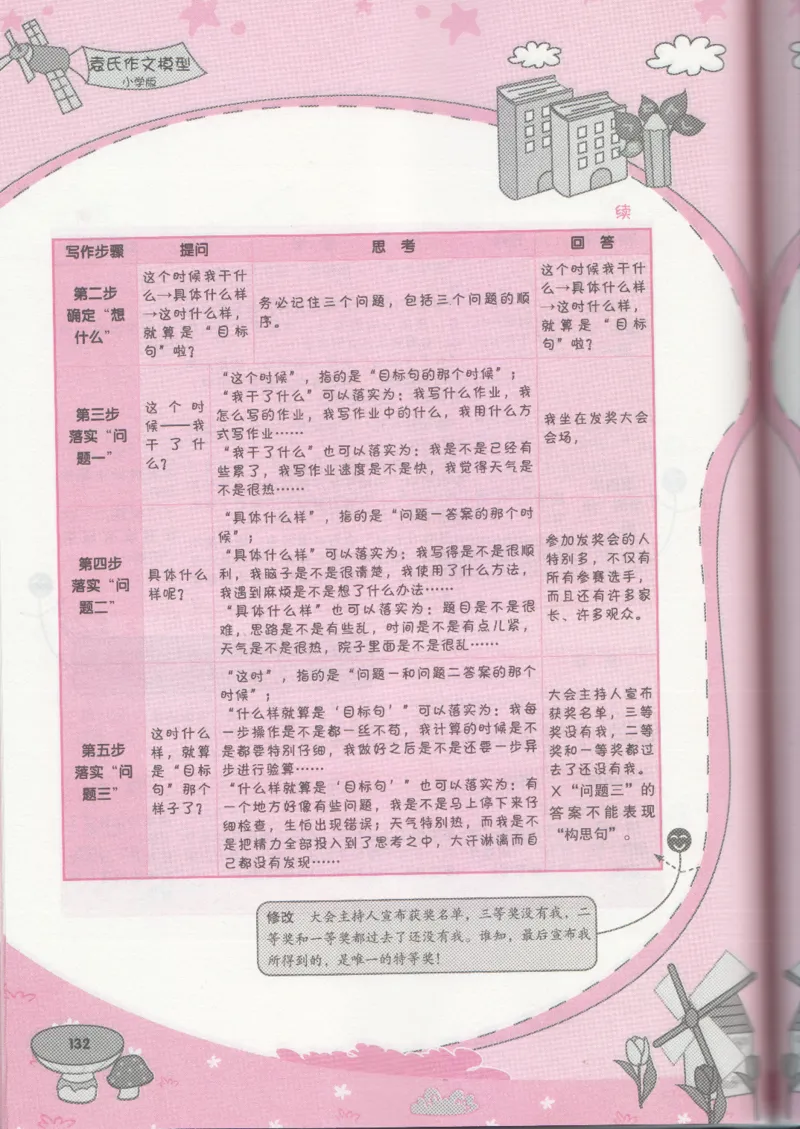 袁氏作文模型
小学版
续
写作步骤 提问 思考 回答
第二步
确定“想
什么”
这个时候我干什
么→具体什么样
→这时什么样，
就算是“目标
句”啦？
务必记住三个问题，包括三个问题的顺
序。
这个时候我干什
么→具体什么样
→这时什么样，
就算是“目标
句”啦？
第三步
落实“问
题一”
这个时
候——我
干了什
么？
“这个时候”，指的是“目标句的那个时候”；
“我干了什么”可以落实为：我写什么作业，我
怎么写的作业，我写作业中的什么，我用什么方
式写作业……
“我干了什么”也可以落实为：我是不是已经有
些累了，我写作业速度是不是快，我觉得天气是
不是很热……
我坐在发奖大会
会场，
第四步
落实“问
题二”
具体什么
样呢？
“具体什么样”，指的是“问题一答案的那个时
候”；
“具体什么样”可以落实为：我写得是不是很顺
利，我脑子是不是很清楚，我使用了什么方法，
我遇到麻烦是不是想了什么办法……
“具体什么样”也可以落实为：题目是不是很
难，思路是不是有些乱，时间是不是有点儿紧，
天气是不是很热，院子里面是不是很乱……
参加发奖会的人
特别多，不仅有
所有参赛选手，
而且还有许多家
长、许多观众。
第五步
落实“问
题三”
这时什么
样，就算
是“目标
句”那个
样子了？
“这时”，指的是“问题一和问题二答案的那个
时候”；
“什么样就算是‘目标句’”可以落实为：我每
一步操作是不是都一丝不苟，我计算的时候是不
是都要特别仔细，我做好之后是不是还要一步异
步进行验算……
“什么样就算是‘目标句’”也可以落实为：有
一个地方好像有些问题，我是不是马上停下来仔
细检查，生怕出现错误；天气特别热，而我是不
是把精力全部投入到了思考之中，大汗淋漓而自
己都没有发现……
大会主持人宣布
获奖名单，三等
奖没有我，二等
奖和一等奖都过
去了还没有我。
X“问题三”的
答案不能表现
“构思句”。
修改 大会主持人宣布获奖名单，三等奖没有我，二
等奖和一等奖都过去了还没有我。谁知，最后宣布我
所得到的，是唯一的特等奖！
132